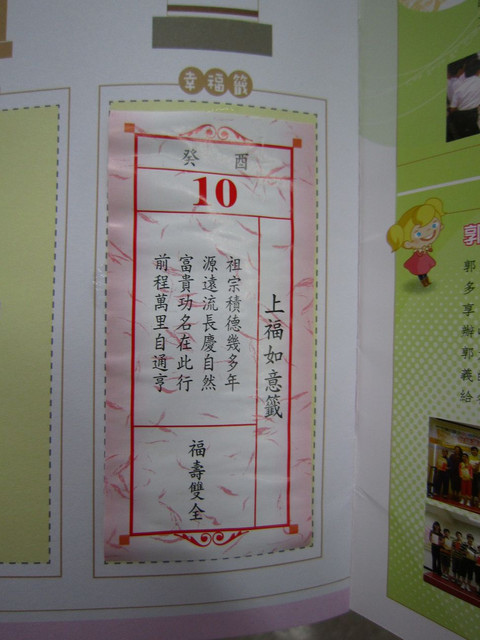 幸福籤
癸酉
10
上福如意籤
祖宗積德幾多年
源遠流長慶自然
富貴功名在此行
前程萬里自通亨
福壽雙全
郭
郭
多
享
辦
郭
義
給